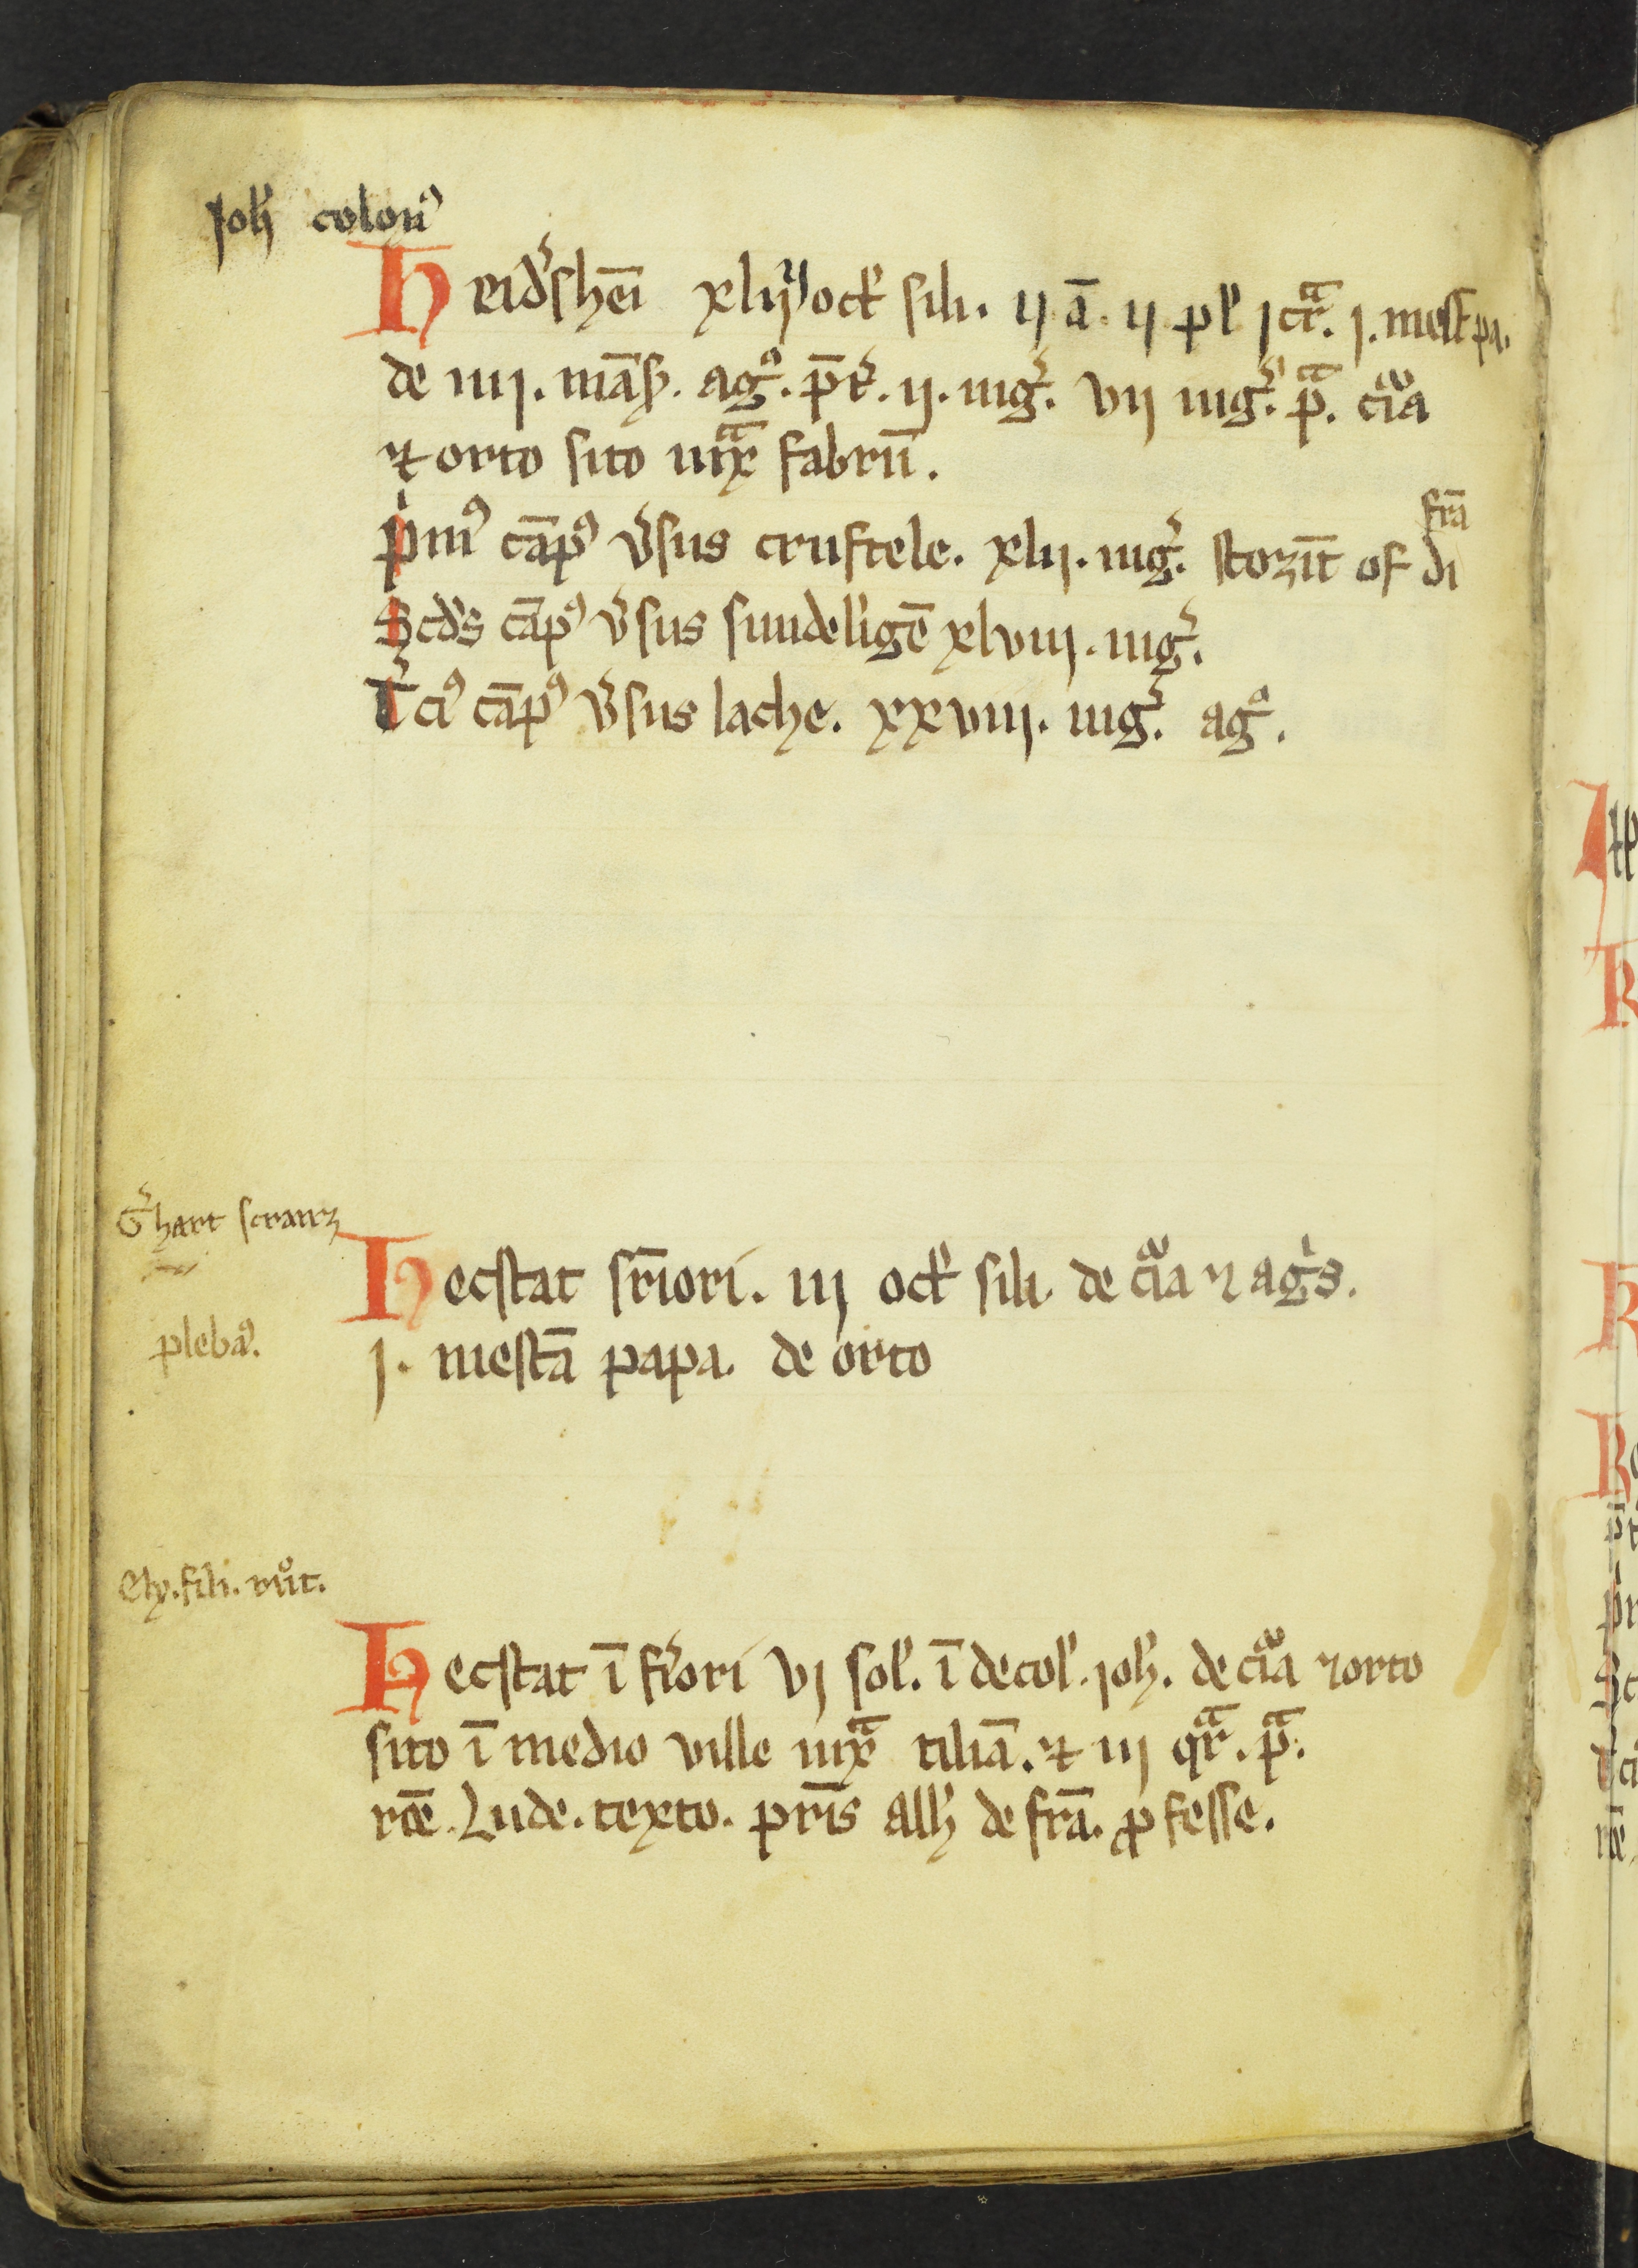 Joh̄ colon᷒
Heid᷒shēi xliij oct᷒ sili. ij ā. ij pl᷒ j cͣr. j. mest pa.
de iiij. mās̄. agͦ. p̄t᷒. ij. iug᷒. vij iug᷒. pͣ. cͣia
⁊ orto sito iuxͣ fabrū.
fr̄a
pͥm᷒ cāp᷒ v᷒sus cruftele. xlij. iug᷒. stozīt of di
Scd᷒s cāp᷒ v᷒sus sundeligē xlviij. iug᷒.
T᷒ci᷒ cāp᷒ v᷒sus lache. xxviij. iug᷒. agͦ.
G᷒hart scranz
Hecstat sr̄iori. iij oct᷒ sili. de cͣia ⁊ agͥs.
pleba᷒.
j. mestā papa. de orto
Ely. fili. vuͦt.
Hecstat ī fr᷒ori vj sol᷒. ī decol᷒. joh̄. de cͣia ⁊ orto
sito ī medio ville iuxͣ tiliā. ⁊ iij qͣr. pͣ.
rōe. Lude. texto. pr̄is Alb̄ de fr̄a. ꝓ fesse.